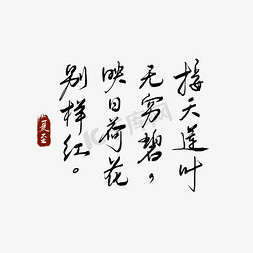 接天莲叶
无穷碧，
映日荷花
别样红。
夏至